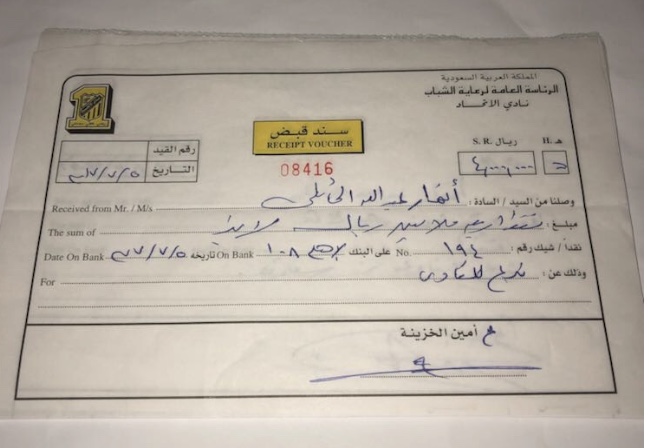 المملكة العربية السعودية
الرئاسة العامة لرعاية الشباب
نادي الاتحاد
1
سند قبض
RECEIPT VOUCHER
08416
رقم القيد
التاريخ ٣٧/٧/٥
ريال S. R.
٤,٠٠٠,٠٠٠
هـ H.
وصلنا من السيد / السادة : أنمار عبدالله الحائلي Received from Mr. / M/s
مبلغ : نقدا أربعة ملايين ريال لا غير The sum of
نقداً / شيك رقم : ١٩٤ No. على البنك On Bank تاريخه ٣٧/٧/٥ Date On Bank
وذلك عن : For
أمين الخزينة